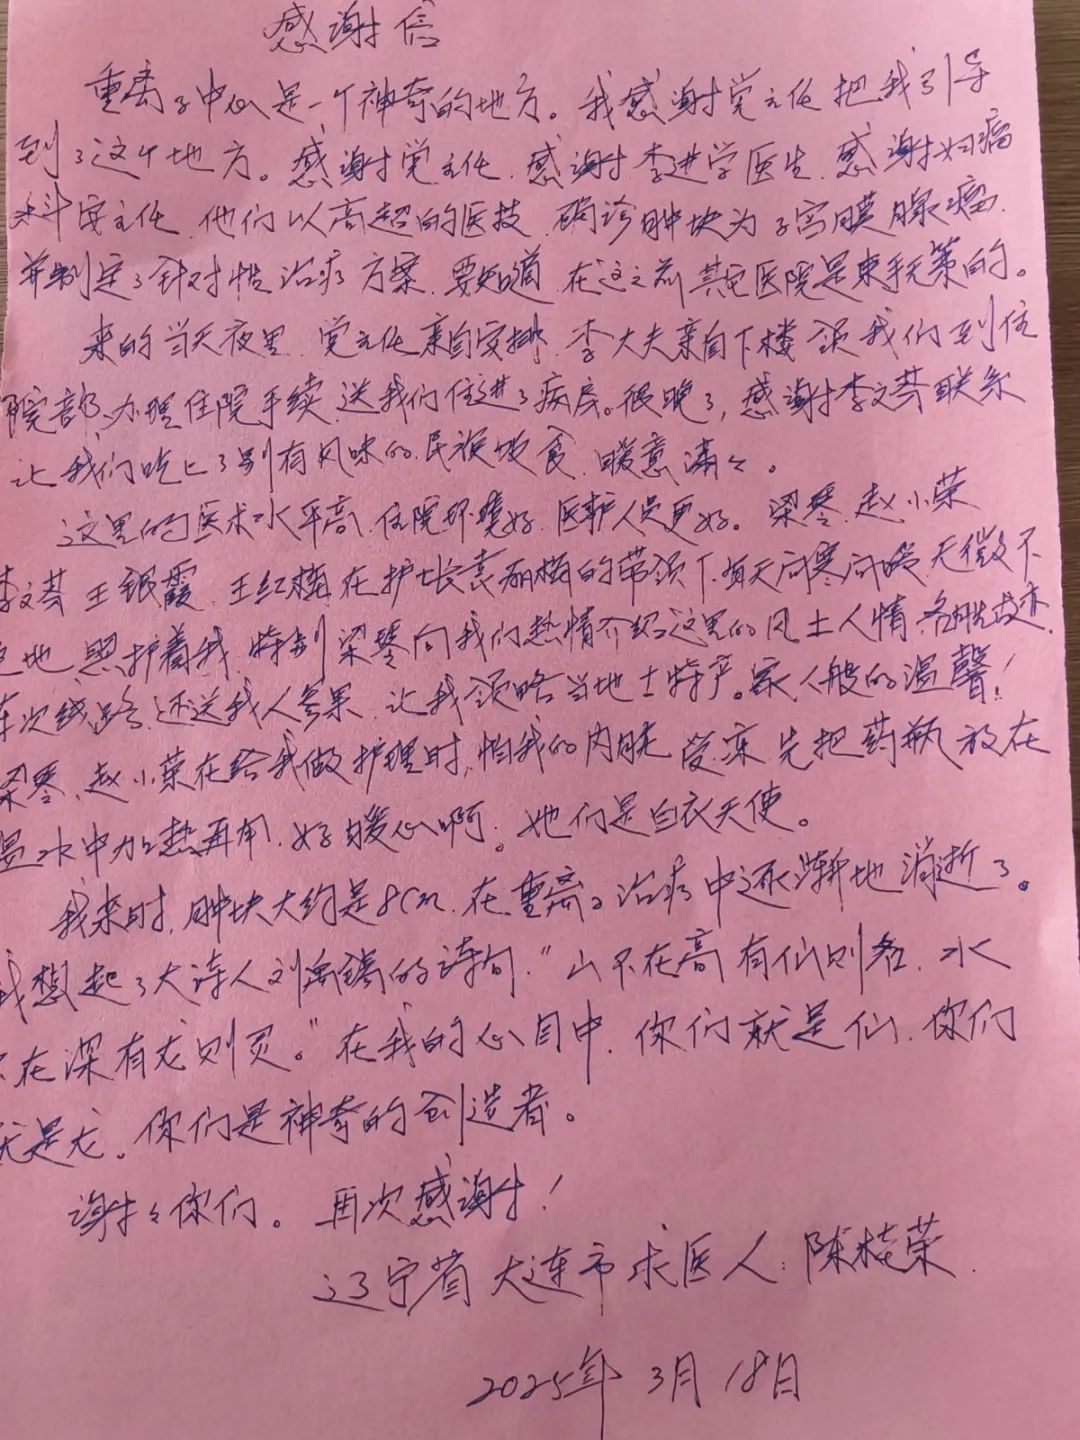 感谢信
重离子中心是一个神奇的地方。我感谢党主任把我引导
到了这个地方。感谢党主任、感谢李进学医生、感谢妇瘤
科安主任、他们以高超的医技、确诊肿块为子宫膜腺癌、
并制定了针对性治疗方案、要知道、在这之前其它医院是束手无策的。
来的当天夜里、党主任亲自安排、李大夫亲自下楼领我们到住
院部、办理住院手续、送我们住进了病房。很晚了，感谢李文荟联系
让我们吃上了别有风味的民族饮食、暖意满々。
这里的医术水平高、住院环境好、医护人员更好。梁琴、赵小荣
李文荟、王银霞、王红梅、在护长袁丽梅的带领下、每天问寒问暖、无微不
地照护着我、特别梁琴向我们热情介绍这里的风土人情、名胜古迹、
车次线路、还送我人参果、让我领略当地土特产。家人般的温馨！
梁琴、赵小荣在给我做护理时，怕我的内脏受凉、先把药瓶放在
温水中加热再用、好暖心啊。她们是白衣天使。
我来时，肿块大约是8cm、在重离子治疗中逐渐地消逝了。
我想起了大诗人刘禹锡的诗句，"山不在高有仙则名、水
不在深有龙则灵。"在我的心目中、你们就是仙、你们
就是龙。你们是神奇的创造者。
谢々你们。再次感谢！
辽宁省大连市求医人：陈桂荣
2025年3月18日